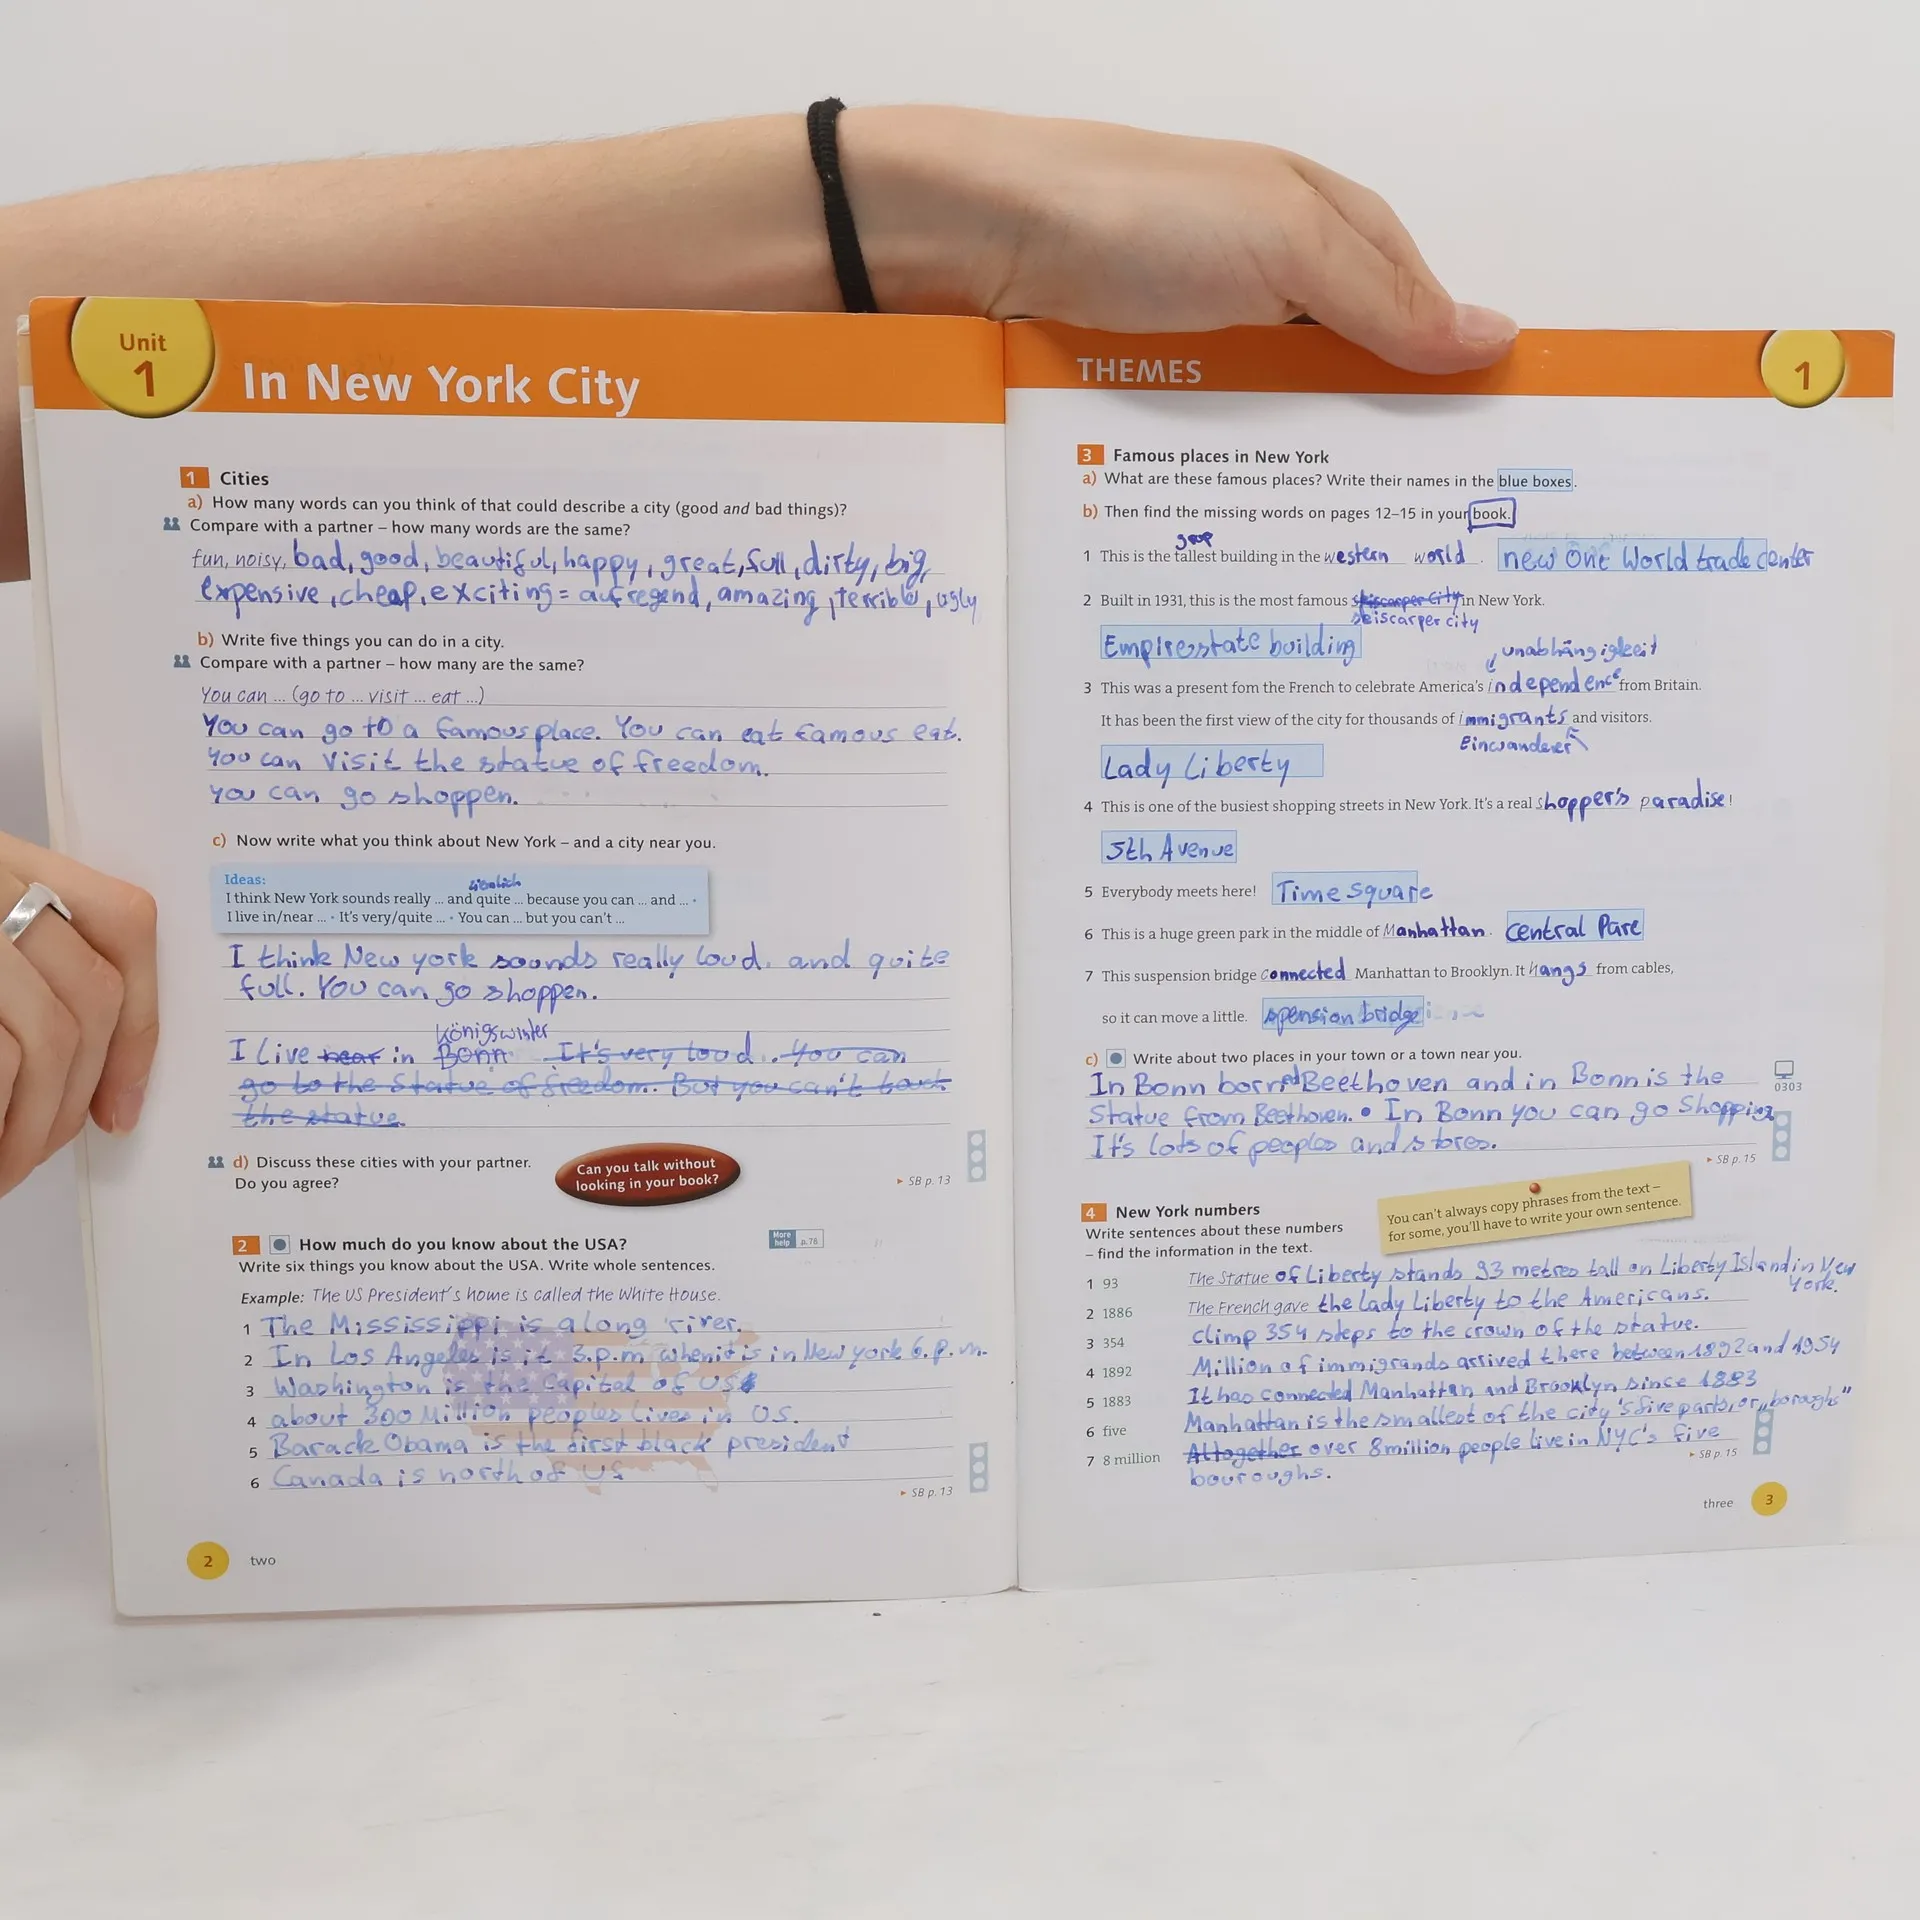 Unit
1
In New York City
1 Cities
a) How many words can you think of that could describe a city (good and bad things)?
Compare with a partner – how many words are the same?
fun, noisy, bad, good, beautiful, happy, great, full, dirty, big,
expensive, cheap, exciting = aufregend, amazing, terrible, ugly
b) Write five things you can do in a city.
Compare with a partner – how many are the same?
You can ... (go to ... visit ... eat ...)
You can go to a famous place. You can eat famous eat.
You can visit the statue of freedom.
you can go shoppen.
c) Now write what you think about New York – and a city near you.
Ideas:
ziemlich
I think New York sounds really ... and quite ... because you can ... and ... •
I live in/near ... • It's very/quite ... • You can ... but you can't ...
I think New york sounds really loud. and quite
full. You can go shoppen.
Königswinter
I live near in Bonn. It's very loud. You can
go to the Statue of freedom. But you can't
the statue.
d) Discuss these cities with your partner.
Do you agree?
Can you talk without
looking in your book?
► SB p. 13
2 How much do you know about the USA?
More
help p. 76
Write six things you know about the USA. Write whole sentences.
Example: The US President's home is called the White House.
1 The Mississippi is a long river.
2 In Los Angeles is it 3.p.m when it is in New york 6.p.m.
3 Washington is the Capital of US
4 about 300 Million peoples lives in US.
5 Barack Obama is the first black president
6 Canada is north of US
► SB p. 13
2 two
THEMES
1
3 Famous places in New York
a) What are these famous places? Write their names in the blue boxes.
b) Then find the missing words on pages 12–15 in your book.
1 This is the tallest building in the western world. new One World trade center
2 Built in 1931, this is the most famous skiscarper City in New York.
skiscarper city
Empire state building
unabhängigkeit
3 This was a present fom the French to celebrate America's independence from Britain.
It has been the first view of the city for thousands of immigrants and visitors.
Einwanderer
Lady Liberty
4 This is one of the busiest shopping streets in New York. It's a real shopper's paradise!
5th Avenue
5 Everybody meets here! Time square
6 This is a huge green park in the middle of Manhattan. central Parc
7 This suspension bridge connected Manhattan to Brooklyn. It hangs from cables,
so it can move a little. spension bridge
c) Write about two places in your town or a town near you.
0303
In Bonn borned Beethoven and in Bonn is the
Statue from Beethoven. • In Bonn you can go Shopping
It's lots of peoples and stores.
► SB p. 15
4 New York numbers
Write sentences about these numbers
– find the information in the text.
You can't always copy phrases from the text –
for some, you'll have to write your own sentence.
1 93 The Statue of Liberty stands 93 metres tall on Liberty Island in New
York.
2 1886 The French gave the Lady Liberty to the Americans.
3 354 climp 354 steps to the crown of the statue.
4 1892 Million of immigrands arrived there between 1892 and 1954
5 1883 It has connected Manhattan and Brooklyn since 1883
6 five Manhattan is the smallest of the city's five parts, or „boroughs"
7 8 million Altogether over 8 million people live in NYC's five
bouroughs.
► SB p. 15
three 3